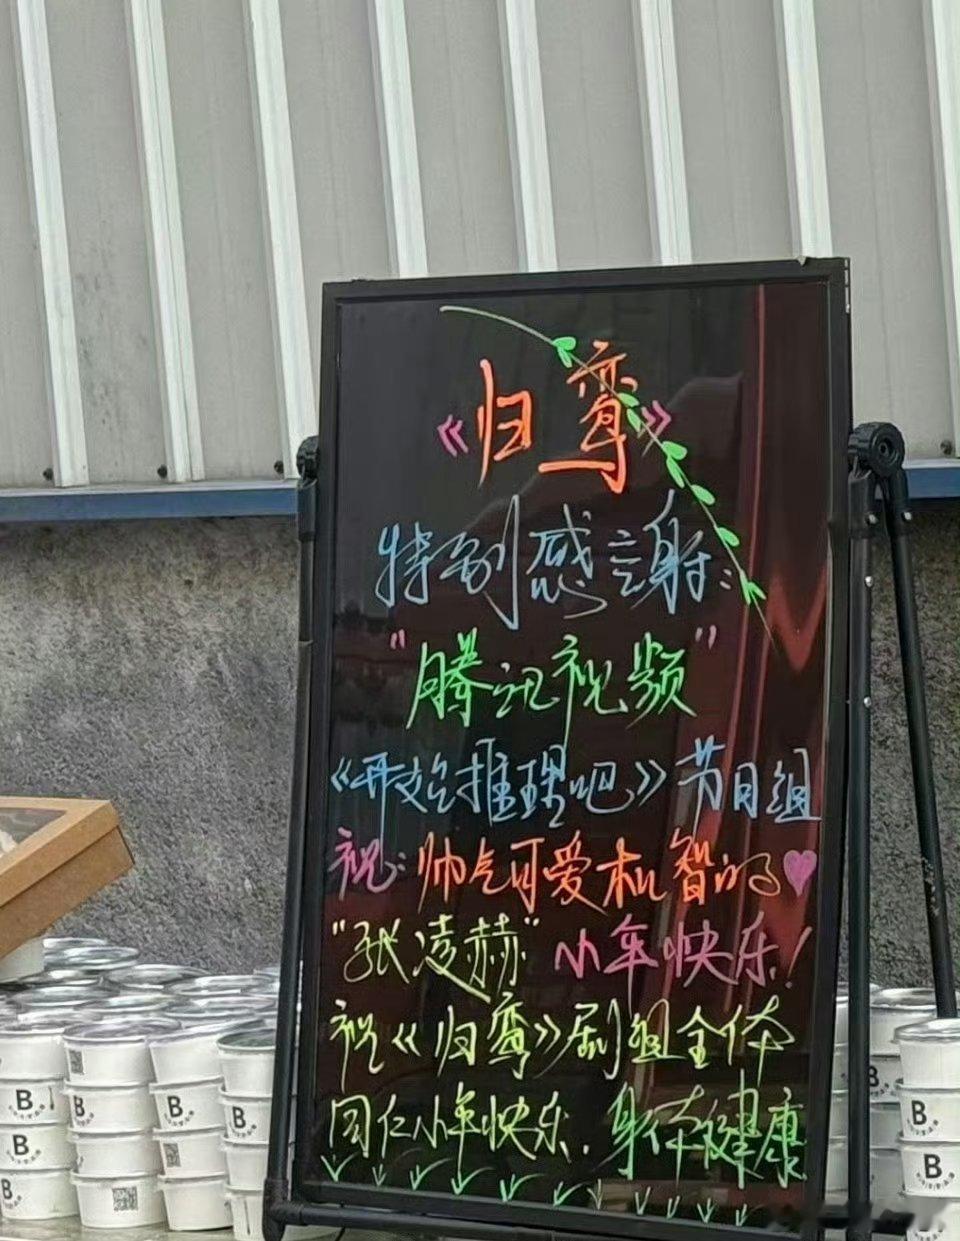 《归鸾》
特别感谢:
"腾讯视频"
《开始推理吧》节目组
祝:帅气可爱机智的
"张凌赫"小年快乐!
祝《归鸾》剧组全体
同仁小年快乐.身体健康
B
B
B
B
B
B
B
B
B
B